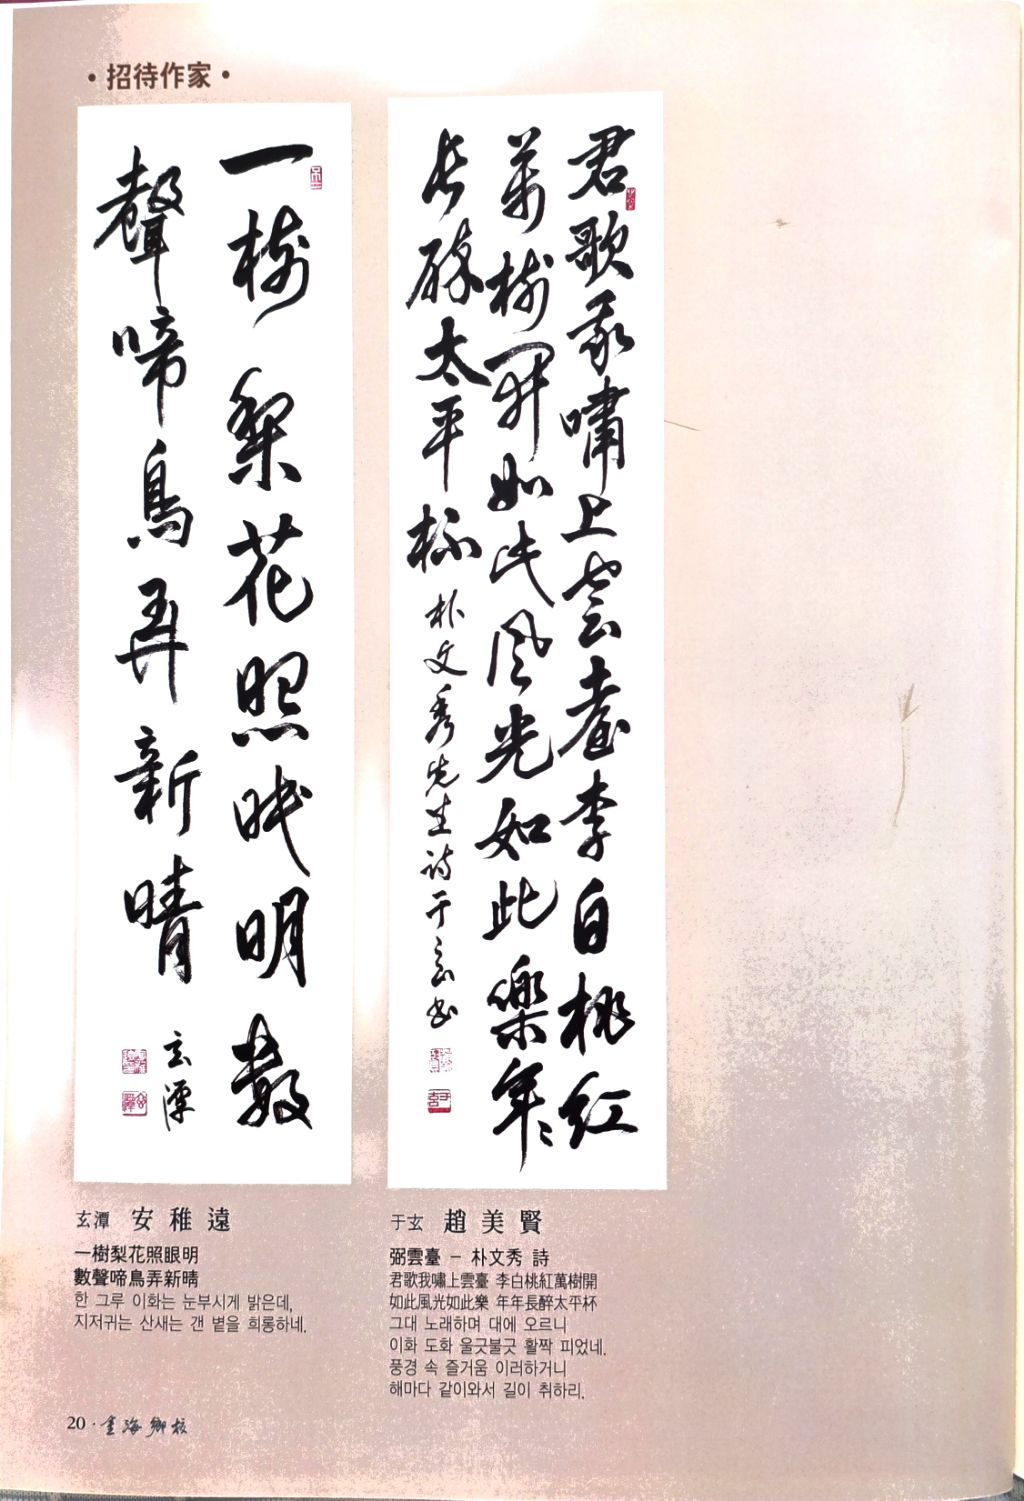 ・招待作家・
君歌我嘯上雲臺李白桃紅
萬樹開如此風光如此樂年々
長醉太平杯 朴文秀先生詩于玄書
一樹梨花照眼明數
聲啼鳥弄新晴
玄潭
玄潭 安稚遠
一樹梨花照眼明
數聲啼鳥弄新晴
한 그루 이화는 눈부시게 밝은데,
지저귀는 산새는 갠 볕을 희롱하네.
于玄 趙美賢
弼雲臺 – 朴文秀 詩
君歌我嘯上雲臺 李白桃紅萬樹開
如此風光如此樂 年年長醉太平杯
그대 노래하며 대에 오르니
이화 도화 울긋불긋 활짝 피었네.
풍경 속 즐거움 이러하거니
해마다 같이와서 길이 취하리.
20 · 金海鄕校